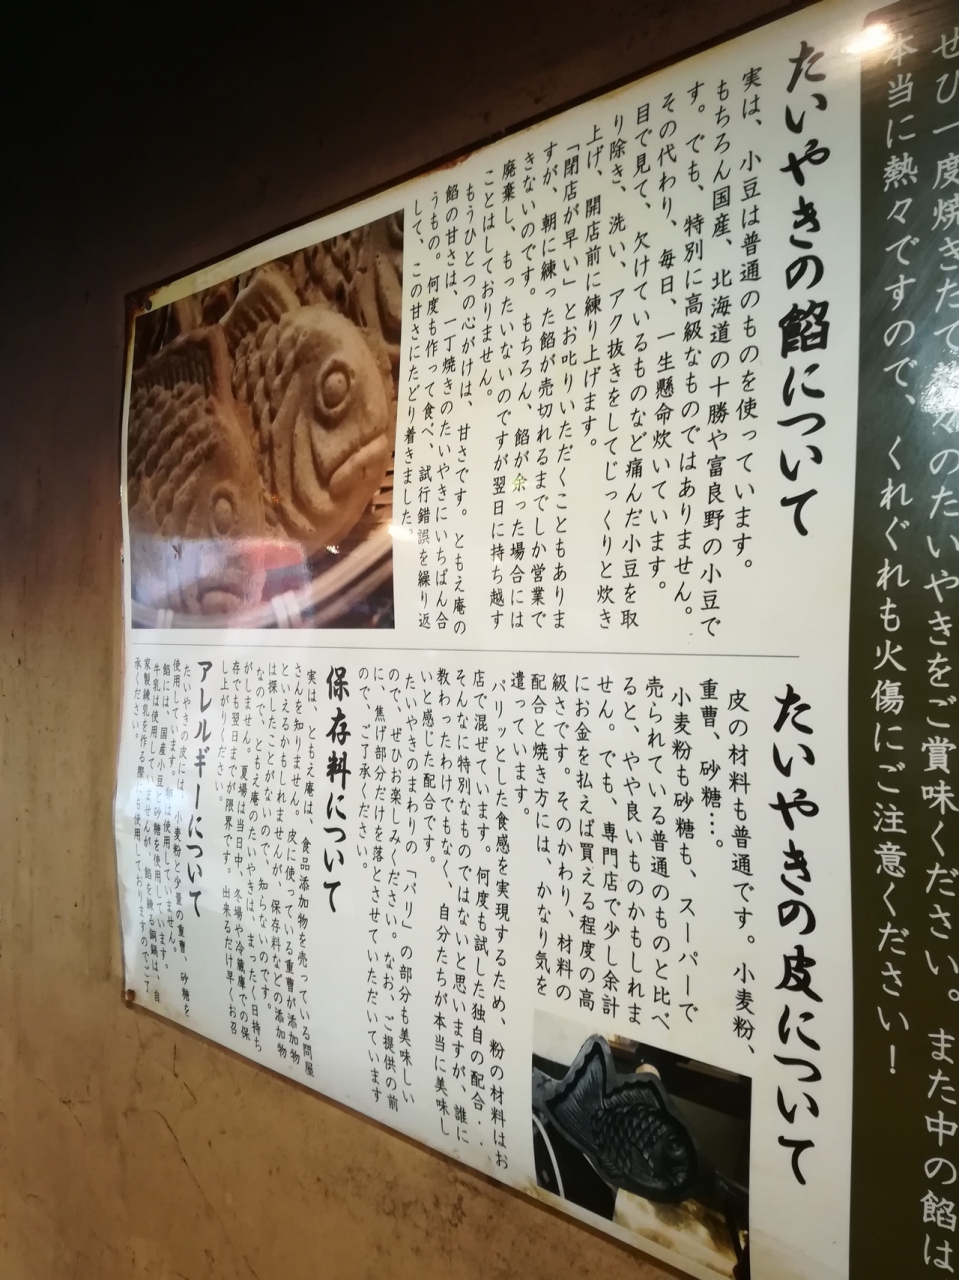 ぜひ一度焼きたて
のたいやきをご賞味ください。また中の餡は
本当に熱々ですので、くれぐれも火傷にご注意ください！
たいやきの餡について
実は、小豆は普通のものを使っています。
もちろん国産、北海道の十勝や富良野の小豆で
す。でも、特別に高級なものではありません。
その代わり、毎日、一生懸命炊いています。
目で見て、欠けているものなど痛んだ小豆を取
り除き、洗い、アク抜きをしてじっくりと炊き
上げ、開店前に練り上げます。
「閉店が早い」とお叱りいただくこともありま
すが、朝に練った餡が売切れるまでしか営業で
きないのです。もちろん、餡が余った場合には
廃棄し、もったいないのですが翌日に持ち越す
ことはしておりません。
もうひとつの心がけは、甘さです。ともえ庵の
餡の甘さは、一丁焼きのたいやきにいちばん合
うもの。何度も作って食べ、試行錯誤を繰り返
して、この甘さにたどり着きました。
たいやきの皮について
皮の材料も普通です。小麦粉、
重曹、砂糖…。
小麦粉も砂糖も、スーパーで
売られている普通のものと比べ
ると、やや良いものかもしれま
せん。でも、専門店で少し余計
にお金を払えば買える程度の高
級さです。そのかわり、材料の
配合と焼き方には、かなり気を
遣っています。
パリッとした食感を実現するため、粉の材料はお
店で混ぜています。何度も試した独自の配合‥
そんなに特別なものではないと思いますが、誰に
教わったわけでもなく、自分たちが本当に美味し
いと感じた配合です。
たいやきのまわりの「バリ」の部分も美味しい
ので、ぜひお楽しみください。なお、ご提供の前
に、焦げ部分だけを落とさせていただいています
ので、ご了承ください。
保存料について
実は、ともえ庵は、食品添加物を売っている問屋
さんを知りません。皮に使っている重曹が添加物
といえるかもしれませんが、保存料などの添加物
は探したことがないので、知らないのです。
なので、ともえ庵のたいやきは、まったく日持ち
がしません。夏場は当日中、冬場や冷蔵庫での保
存でも翌日までが限界です。出来るだけ早くお召
し上がりください。
アレルギーについて
たいやきの皮には、小麦粉と少量の重曹、砂糖を
使用しています。卵は使用していません。
餡には、国産小豆と砂糖を使用しています。
牛乳は使用していませんが、餡を練る銅鍋は、自
家製練乳を作る際にも使用しておりますのでご了
承ください。